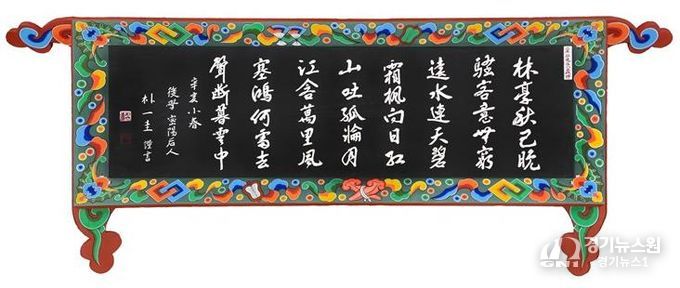 林亭秋已晚
騷客意無窮
遠水連天碧
霜楓向日紅
山吐孤輪月
江含萬里風
塞鴻何處去
聲断暮雲中
辛亥小春
後學密陽后人
朴一圭 謹書
경기뉴스원
경기뉴스1